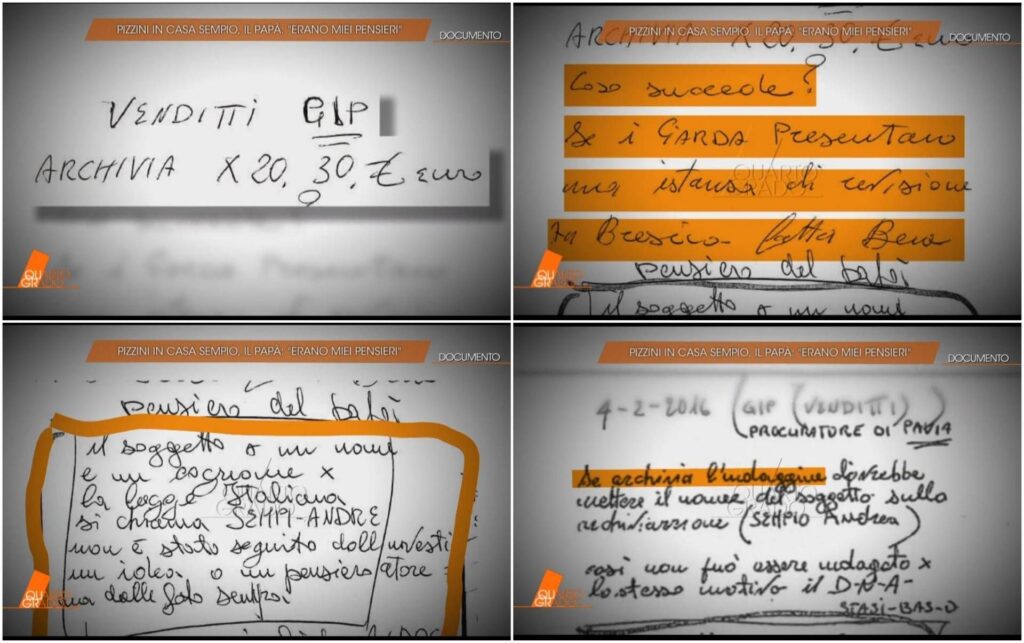 PIZZINI IN CASA SEMPIO, IL PAPA': "ERANO MIEI PENSIERI"
DOCUMENTO
VENDITTI GIP
ARCHIVIA X 20. 30. € euro
?
QUARTO
GRADO
PIZZINI IN CASA SEMPIO, IL PAPA': "ERANO MIEI PENSIERI"
DOCUMENTO
ARCHIVIA X 20. 30. € euro
Cosa succede?
Se i GARDA Presentano
una istansa di revisione
A Brescia fatta Bene
pensiero del
il soggetto a un nome
QUARTO
GRADO
QUARTO
GRADO
PIZZINI IN CASA SEMPIO, IL PAPA': "ERANO MIEI PENSIERI"
DOCUMENTO
pensiero del
il soggetto a un nome
e un cognome x
la legge Italiana
si chiama SEMPI-ANDRE
non è stato seguito dall'investi
un idea o un pensiero atore
ma dalle foto sembra
QUARTO
GRADO
PIZZINI IN CASA SEMPIO, IL PAPA': "ERANO MIEI PENSIERI"
DOCUMENTO
4-2-2016 (GIP (VENDITTI)
(PROCURATORE DI PAVIA
Se archivia l'indaggine dovrebbe
mettere il nome del soggetto sulla
(SEMPIO Andrea)
cosi non può essere indagato x
lo stesso motivo il D-N-A-
STASI-BAS-O
QUARTO
GRADO